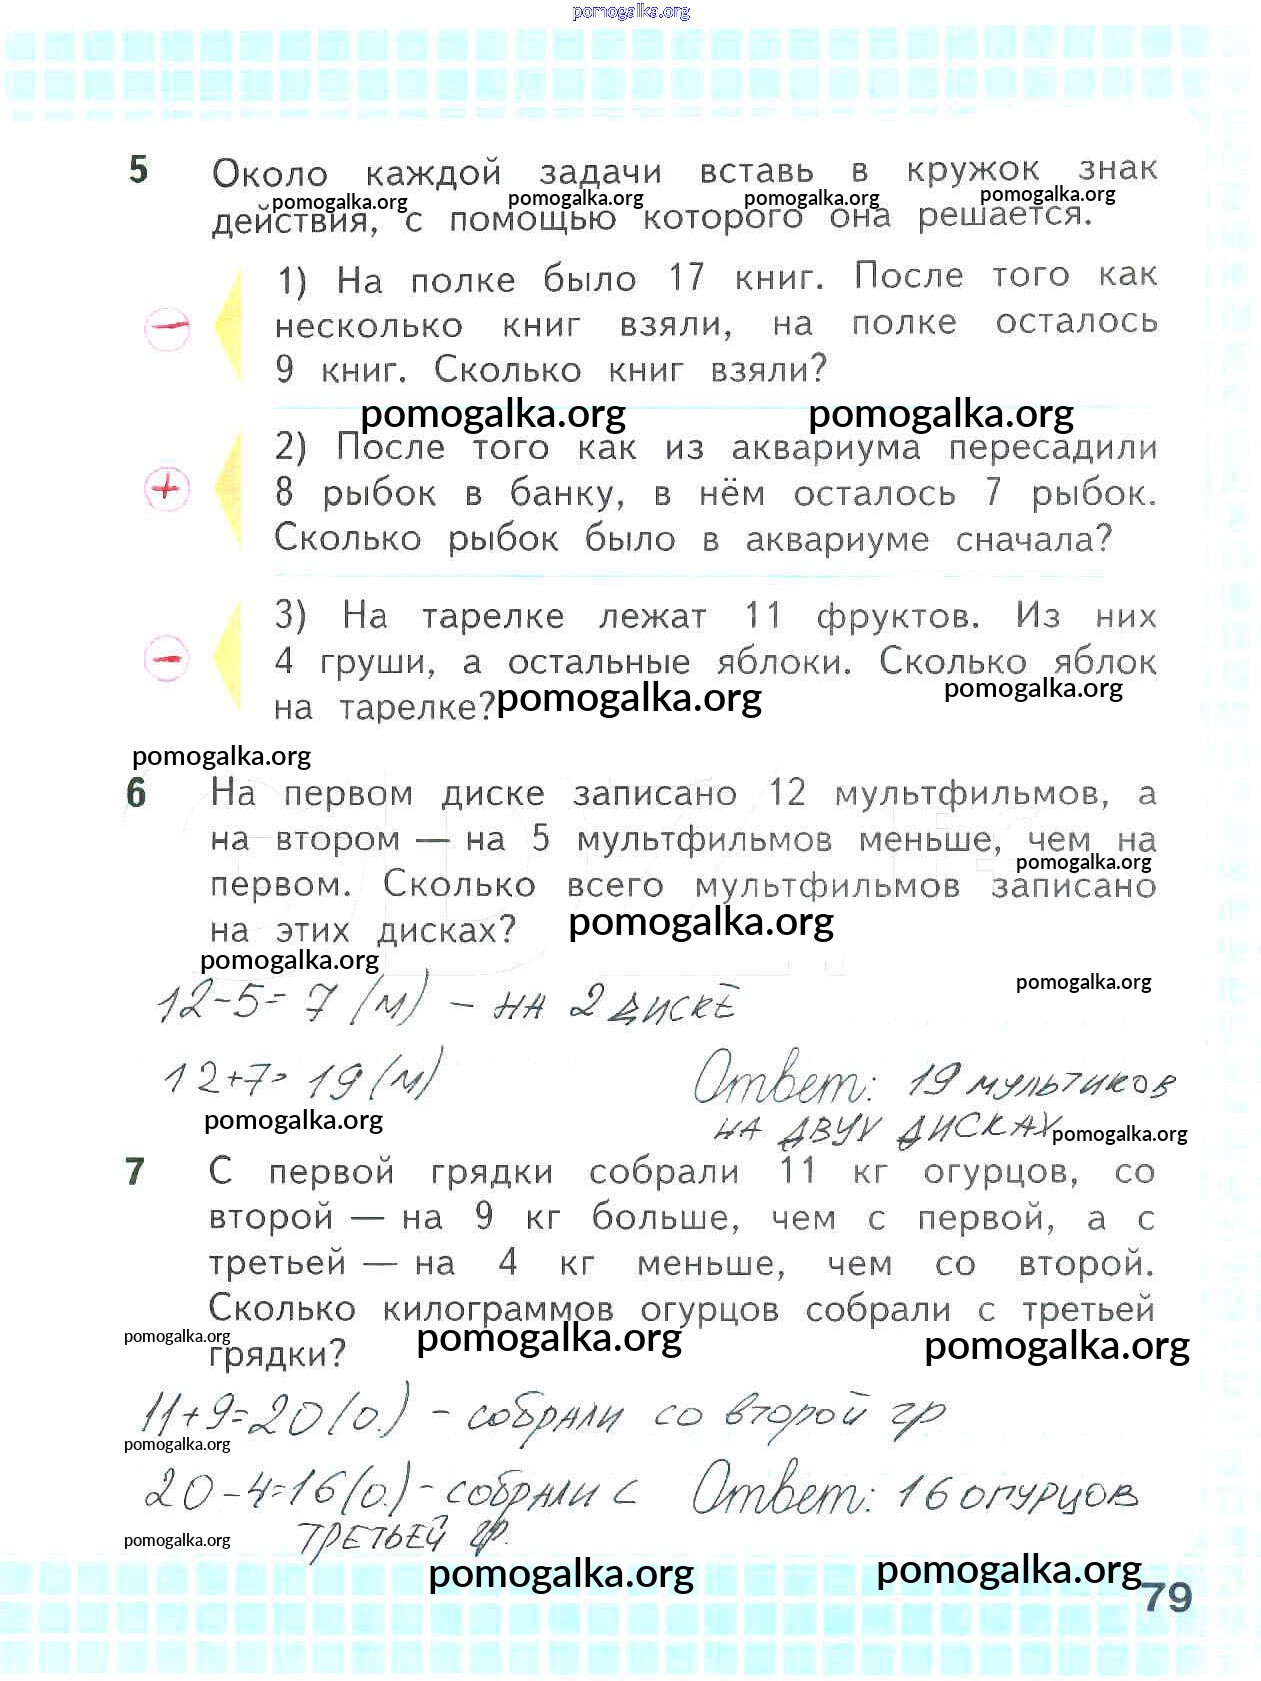 pomogalka.org
5 Около каждой задачи вставь в кружок знак
pomogalka.org pomogalka.org pomogalka.org pomogalka.org
действия, с помощью которого она решается.
1) На полке было 17 книг. После того как
− несколько книг взяли, на полке осталось
9 книг. Сколько книг взяли?
pomogalka.org pomogalka.org
2) После того как из аквариума пересадили
+ 8 рыбок в банку, в нём осталось 7 рыбок.
Сколько рыбок было в аквариуме сначала?
3) На тарелке лежат 11 фруктов. Из них
− 4 груши, а остальные яблоки. Сколько яблок
на тарелке? pomogalka.org pomogalka.org
pomogalka.org
6 На первом диске записано 12 мультфильмов, а
на втором — на 5 мультфильмов меньше, чем на
pomogalka.org
первом. Сколько всего мультфильмов записано
на этих дисках? pomogalka.org
pomogalka.org pomogalka.org
12-5=7 (м) - на 2 диске
12+7=19 (м) Ответ: 19 мультиков
pomogalka.org на двух дисках pomogalka.org
7 С первой грядки собрали 11 кг огурцов, со
второй — на 9 кг больше, чем с первой, а с
третьей — на 4 кг меньше, чем со второй.
Сколько килограммов огурцов собрали с третьей
pomogalka.org pomogalka.org pomogalka.org
грядки?
11+9=20 (о.) - собрали со второй гр
pomogalka.org
20-4=16 (о.) - собрали с Ответ: 16 огурцов
третьей гр.
pomogalka.org
pomogalka.org pomogalka.org
79